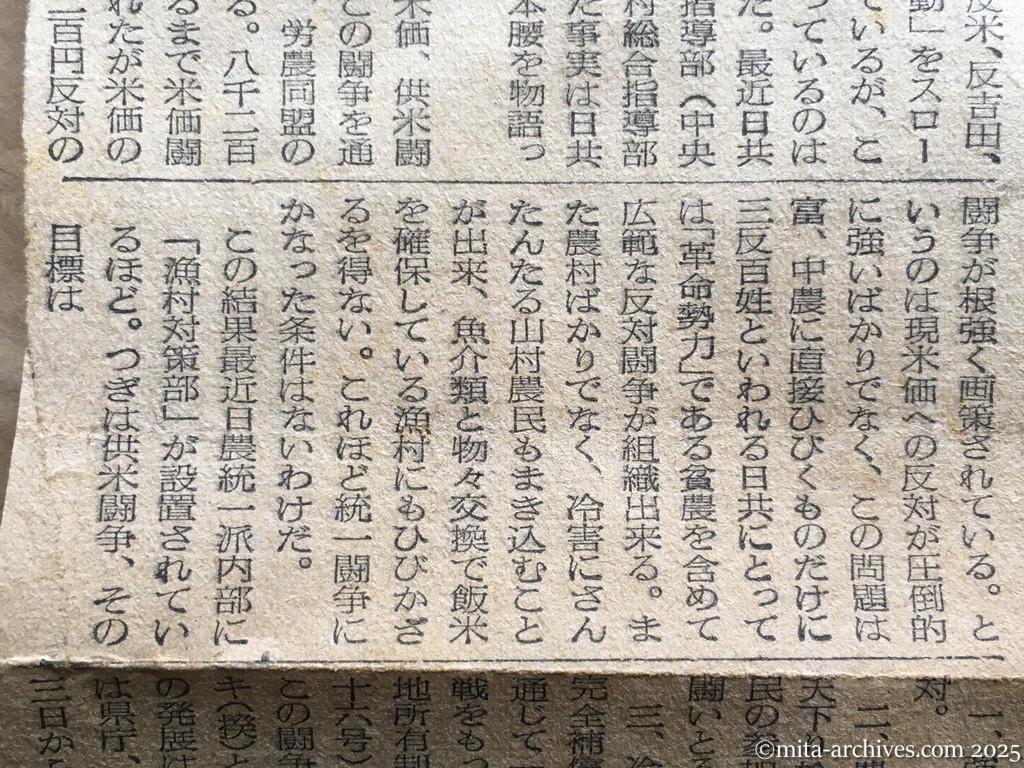 反米、反吉田、
動」をスロー
ているが、こ
っているのは
た。最近日共
指導部（中央
村総合指導部
た事実は日共
本腰を物語っ
米価、供米闘
この闘争を通
、労農同盟の
る。八千二百
るまで米価闘
れたが米価の
二百円反対の
闘争が根強く画策されている。と
いうのは現米価への反対が圧倒的
に強いばかりでなく、この問題は
富、中農に直接ひびくものだけに
三反百姓といわれる日共にとって
は「革命勢力」である貧農を含めて
広範な反対闘争が組織出来る。ま
た農村ばかりでなく、冷害にさん
たんたる山村農民もまき込むこと
が出来、魚介類と物々交換で飯米
を確保している漁村にもひびかざ
るを得ない。これほど統一闘争に
かなった条件はないわけだ。
この結果最近日農統一派内部に
「漁村対策部」が設置されてい
るほど。つぎは供米闘争、その
目標は
一、
対。
二、
天下り
民の参
闘いと
三、冷
完全補償
通じて
戦をもっ
地所有制
十六号）
この闘争
キ（揆）と
の発展は
は県庁、
三日か
©mita-archives.com 2025